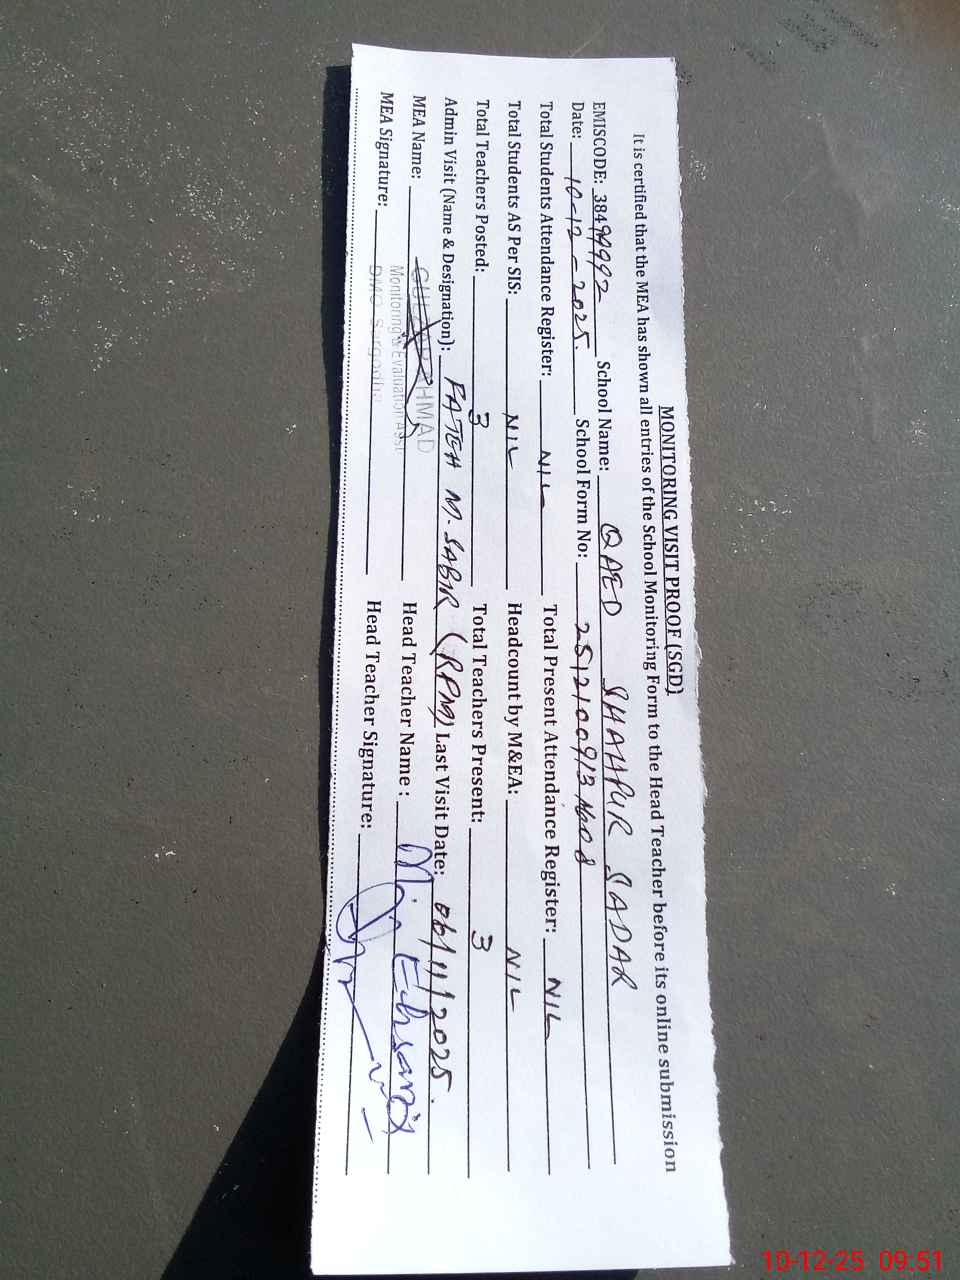 MONITORING VISIT PROOF (SGD)
It is certified that the MEA has shown all entries of the School Monitoring Form to the Head Teacher before its online submission
EMISCODE: 38499992 School Name: QAED SHAHPUR SADAR
Date: 10-12-2025 School Form No:
Total Students Attendance Register: NIL Total Present Attendance Register: NIL
Total Students AS Per SIS: NIL Headcount by M&EA: NIL
Total Teachers Posted: 3 Total Teachers Present: 3
Admin Visit (Name & Designation): FATEH M. SABIR (RPM) Last Visit Date: 06/11/2025.
MEA Name: AHMAD Head Teacher Name :
Monitoring & Evaluation Asst
MEA Signature: DMO Sargodha Head Teacher Signature:
10-12-25 09:51